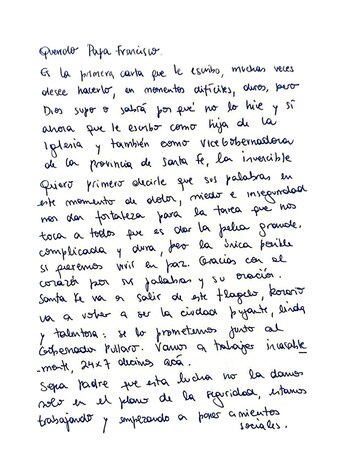 Querido Papa Francisco.
Es la primera carta que le escribo, muchas veces
desee hacerlo, en momentos difíciles, duros, pero
Dios supo o sabrá por qué no lo hice y sí
ahora que le escribo como hija de la
Iglesia y también como Vicegobernadora
de la provincia de Santa Fe, la invencible
Quiero primero decirle que sus palabras en
este momento de dolor, miedo e inseguridad
nos dan fortaleza para la tarea que nos
toca a todos que es dar la pelea grande,
complicada y dura, pero la única posible
si queremos vivir en paz. Gracias con el
corazón por sus palabras y su oración.
Santa Fe va a salir de este flagelo, Rosario
va a volver a ser la ciudad pujante, linda
y talentosa: se lo prometemos junto al
Gobernador Pullaro. Vamos a trabajar incansable
-mente, 24x7 decimos acá.
Sepa Padre que esta lucha no la damos
solo en el plano de la seguridad, estamos
trabajando y empezando a poner cimientos
sociales.